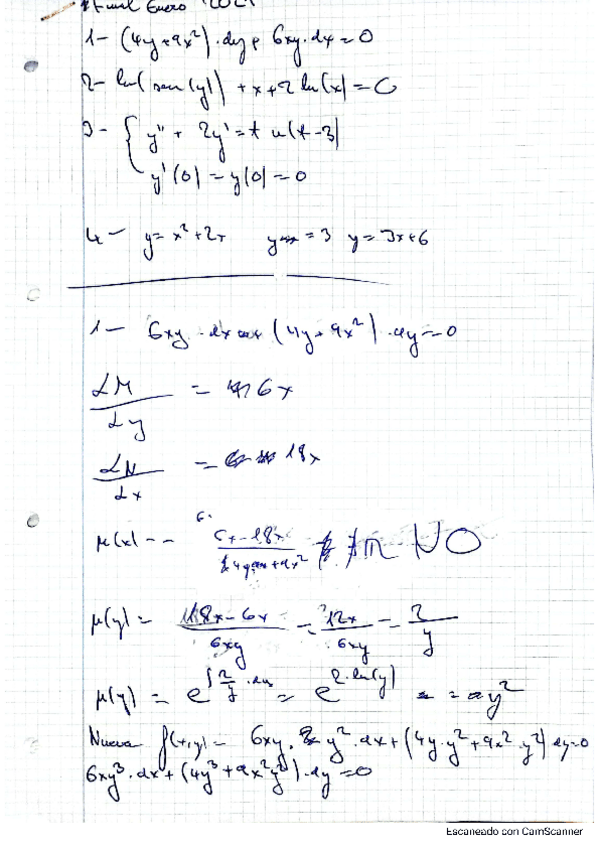 Final Enero 2021
1- (4y+9x²)·dy+ 6xy·dx=0
2- ln(sen(y)) +x+2 ln(x)=C
3- { y''+ 2y'=t u(t-3)
y'(0)=y(0)=0
4- y=x²+2x y=3 y=3x+6
1- 6xy·dx+(4y+9x²)·dy=0
dM/dy = 6x
dN/dx = 18x
μ(x)-- 6x-18x/4y+9x² NO
μ(y)= 18x-6x/6xy = 12x/6xy = 2/y
μ(y)= e^∫2/y·dx = e^2·ln(y) = y²
Nueva f(x,y)= 6xy·y²·dx+(4y·y²+9x²·y²)dy=0
6xy³·dx+(4y³+9x²y²)·dy=0
Escaneado con CamScanner